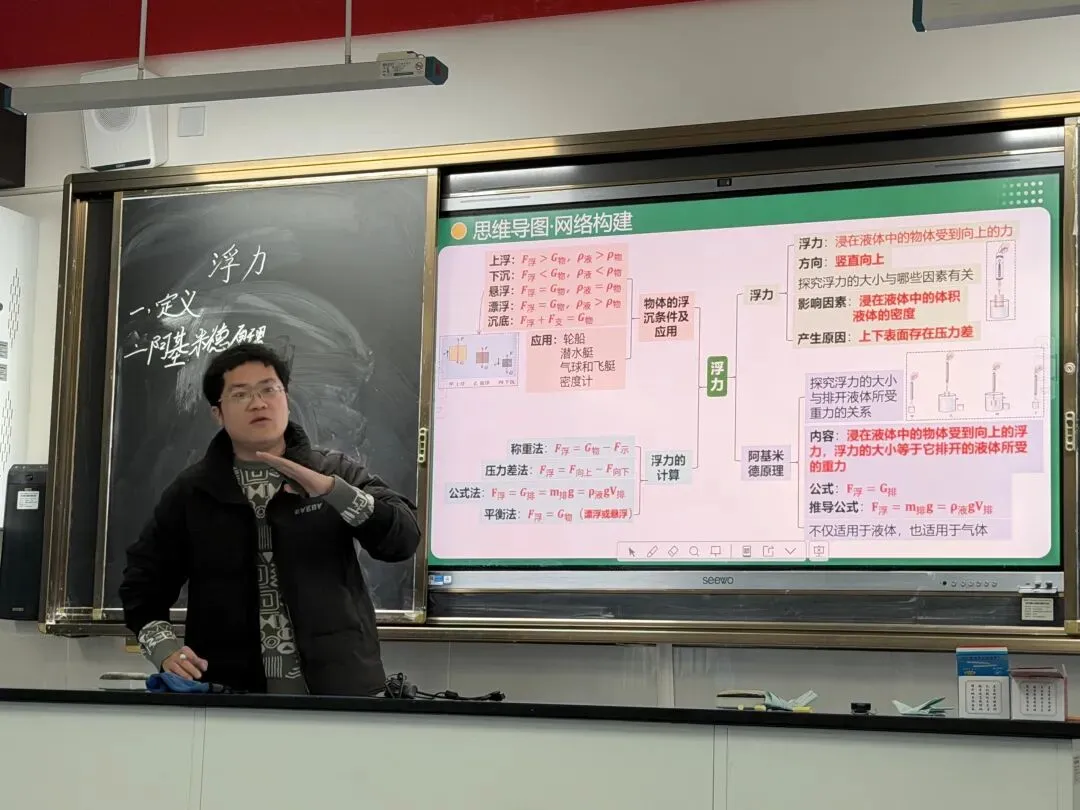 浮力
一、定义
二、阿基米德原理
思维导图·网络构建
上浮：F浮＞G物，ρ液＞ρ物
下沉：F浮＜G物，ρ液＜ρ物
悬浮：F浮＝G物，ρ液＝ρ物
漂浮：F浮＝G物，ρ液＞ρ物
沉底：F浮＋F支＝G物
应用：轮船
潜水艇
气球和飞艇
密度计
物体的浮
沉条件及
应用
称重法：F浮＝G物－F示
压力差法：F浮＝F向上－F向下
公式法：F浮＝G排＝m排g＝ρ液gV排
平衡法：F浮＝G物（漂浮或悬浮）
浮力的
计算
浮力
浮力
浮力：浸在液体中的物体受到向上的力
方向：竖直向上
探究浮力的大小与哪些因素有关
影响因素：浸在液体中的体积
液体的密度
产生原因：上下表面存在压力差
阿基米
德原理
探究浮力的大小
与排开液体所受
重力的关系
内容：浸在液体中的物体受到向上的浮
力，浮力的大小等于它排开的液体所受
的重力
公式：F浮＝G排
推导公式：F浮＝m排g＝ρ液gV排
不仅适用于液体，也适用于气体
seewo